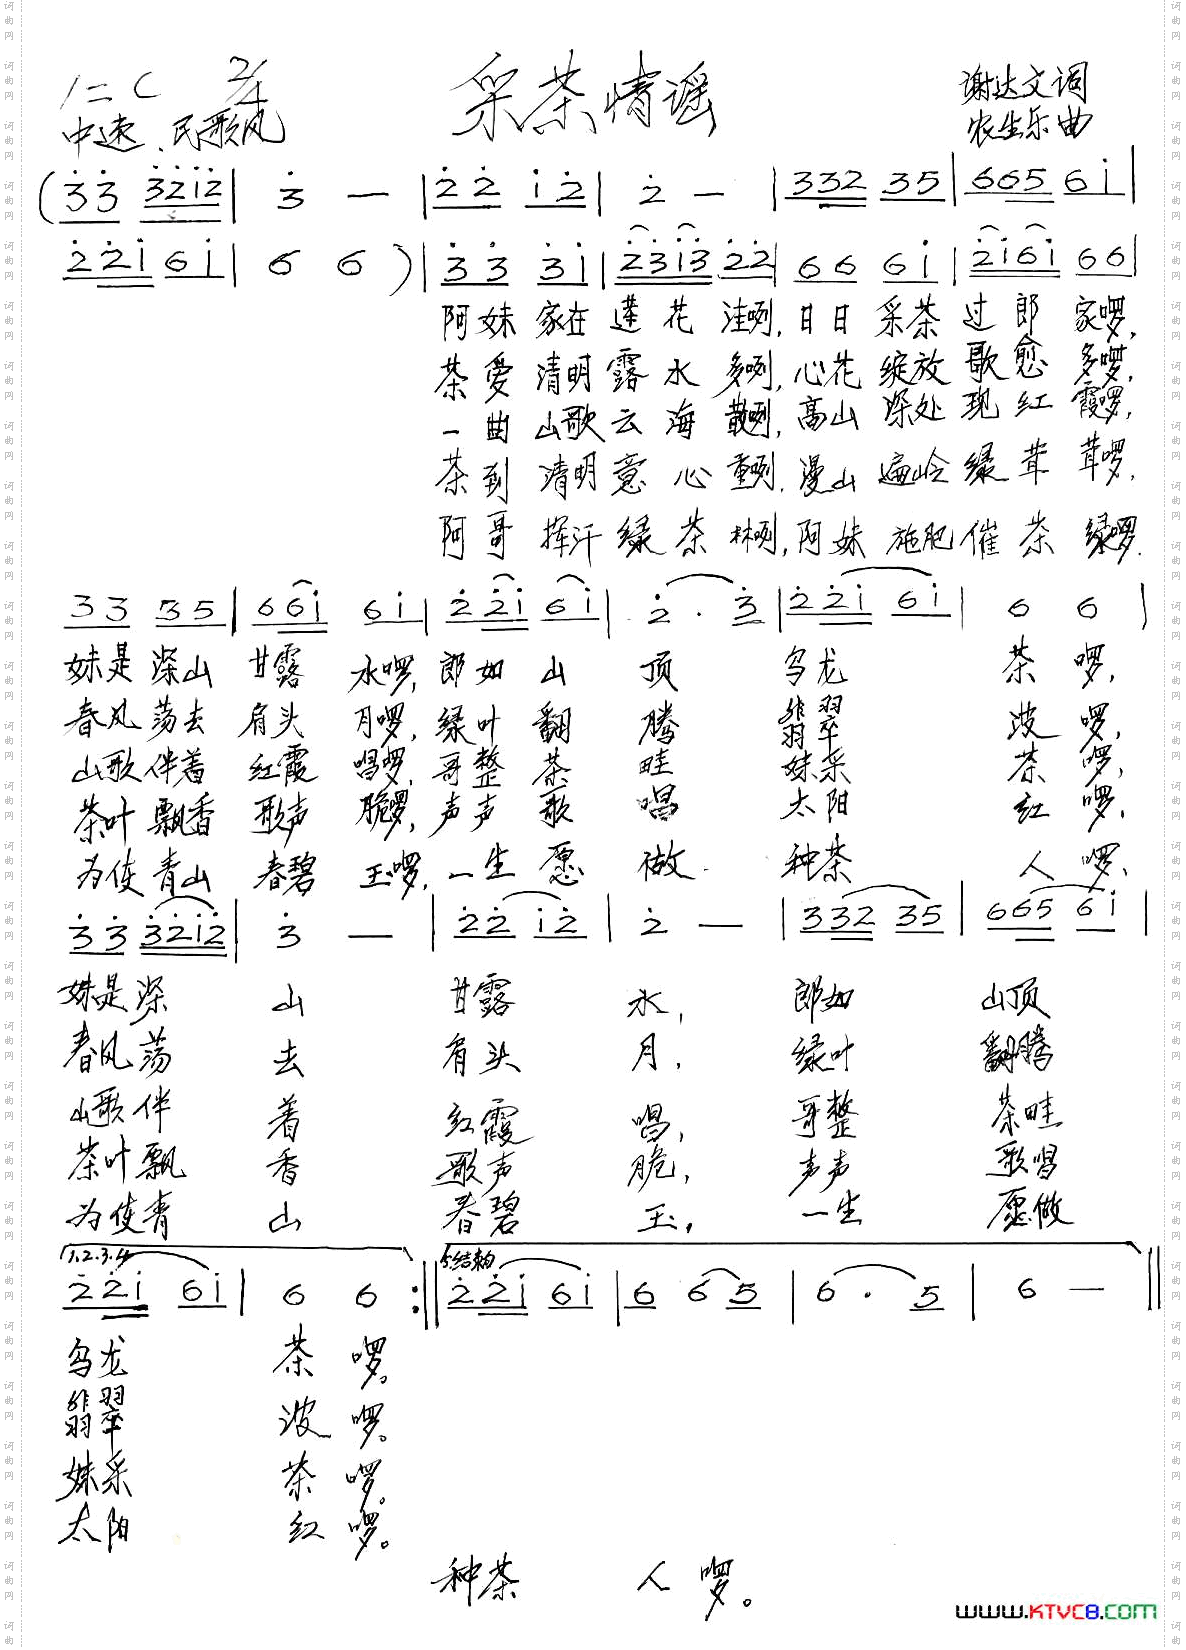 采茶情谣
1=C 2/4
中速、民歌风
谢达文词
农生乐曲
(3̇3̇ 3̇2̇1̇2̇ | 3̇ — | 2̇2̇ 1̇2̇ | 2̇ — | 332 35 | 665 61̇ |
2̇2̇1̇ 61̇ | 6 6 ) | 3̇3̇ 3̇1̇ | 2̇3̇1̇3̇ 2̇2̇ | 66 61̇ | 2̇1̇61̇ 66 |
阿妹家在莲花洼咧,日日采茶过郎家啰,
茶爱清明露水多咧,心花绽放歌愈多啰,
一曲山歌云海散咧,高山深处现红霞啰,
茶到清明意心重咧,漫山遍岭绿茸茸啰,
阿哥挥汗绿茶林咧,阿妹施肥催茶绿啰.
33 35 | 661̇ 61̇ | 2̇2̇1̇ 61̇ | 2̇ · 3̇ | 2̇2̇1̇ 61̇ | 6 6 |
妹是深山甘露水啰,郎如山顶乌龙茶啰,
春风荡去肩头月啰,绿叶翻腾翡翠波啰,
山歌伴着红霞唱啰,哥整茶畦妹采茶啰,
茶叶飘香歌声脆啰,声声歌唱太阳红啰,
为使青山春碧玉啰,一生愿做种茶人啰、
3̇3̇ 3̇2̇1̇2̇ | 3̇ — | 2̇2̇ 1̇2̇ | 2̇ — | 332 35 | 665 61̇ |
妹是深山甘露水,郎如山顶
春风荡去肩头月,绿叶翻腾
山歌伴着红霞唱,哥整茶畦
茶叶飘香歌声脆,声声歌唱
为使青山春碧玉,一生愿做
1.2.3.4 5.结束句
2̇2̇1̇ 61̇ | 6 6 :‖ 2̇2̇1̇ 61̇ | 6 65 | 6 · 5 | 6 — ‖
乌龙茶啰。
翡翠波啰。
妹采茶啰。
太阳红啰。
种茶人啰。
www.KTVC8.com